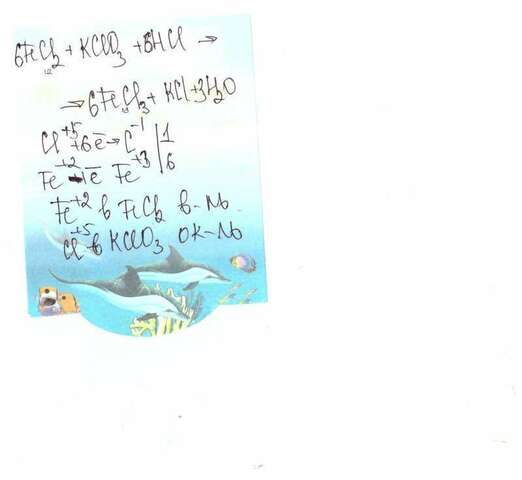 6FeCl₂ + KClO₃ + 6HCl →
→ 6FeCl₃ + KCl + 3H₂O
Cl⁺⁵ + 6ē → C⁻¹ | 1
Fe⁺² - 1ē Fe⁺³ | 6
Fe⁺² в FeCl₂ в-ль
Cl⁺⁵ в KClO₃ ок-ль